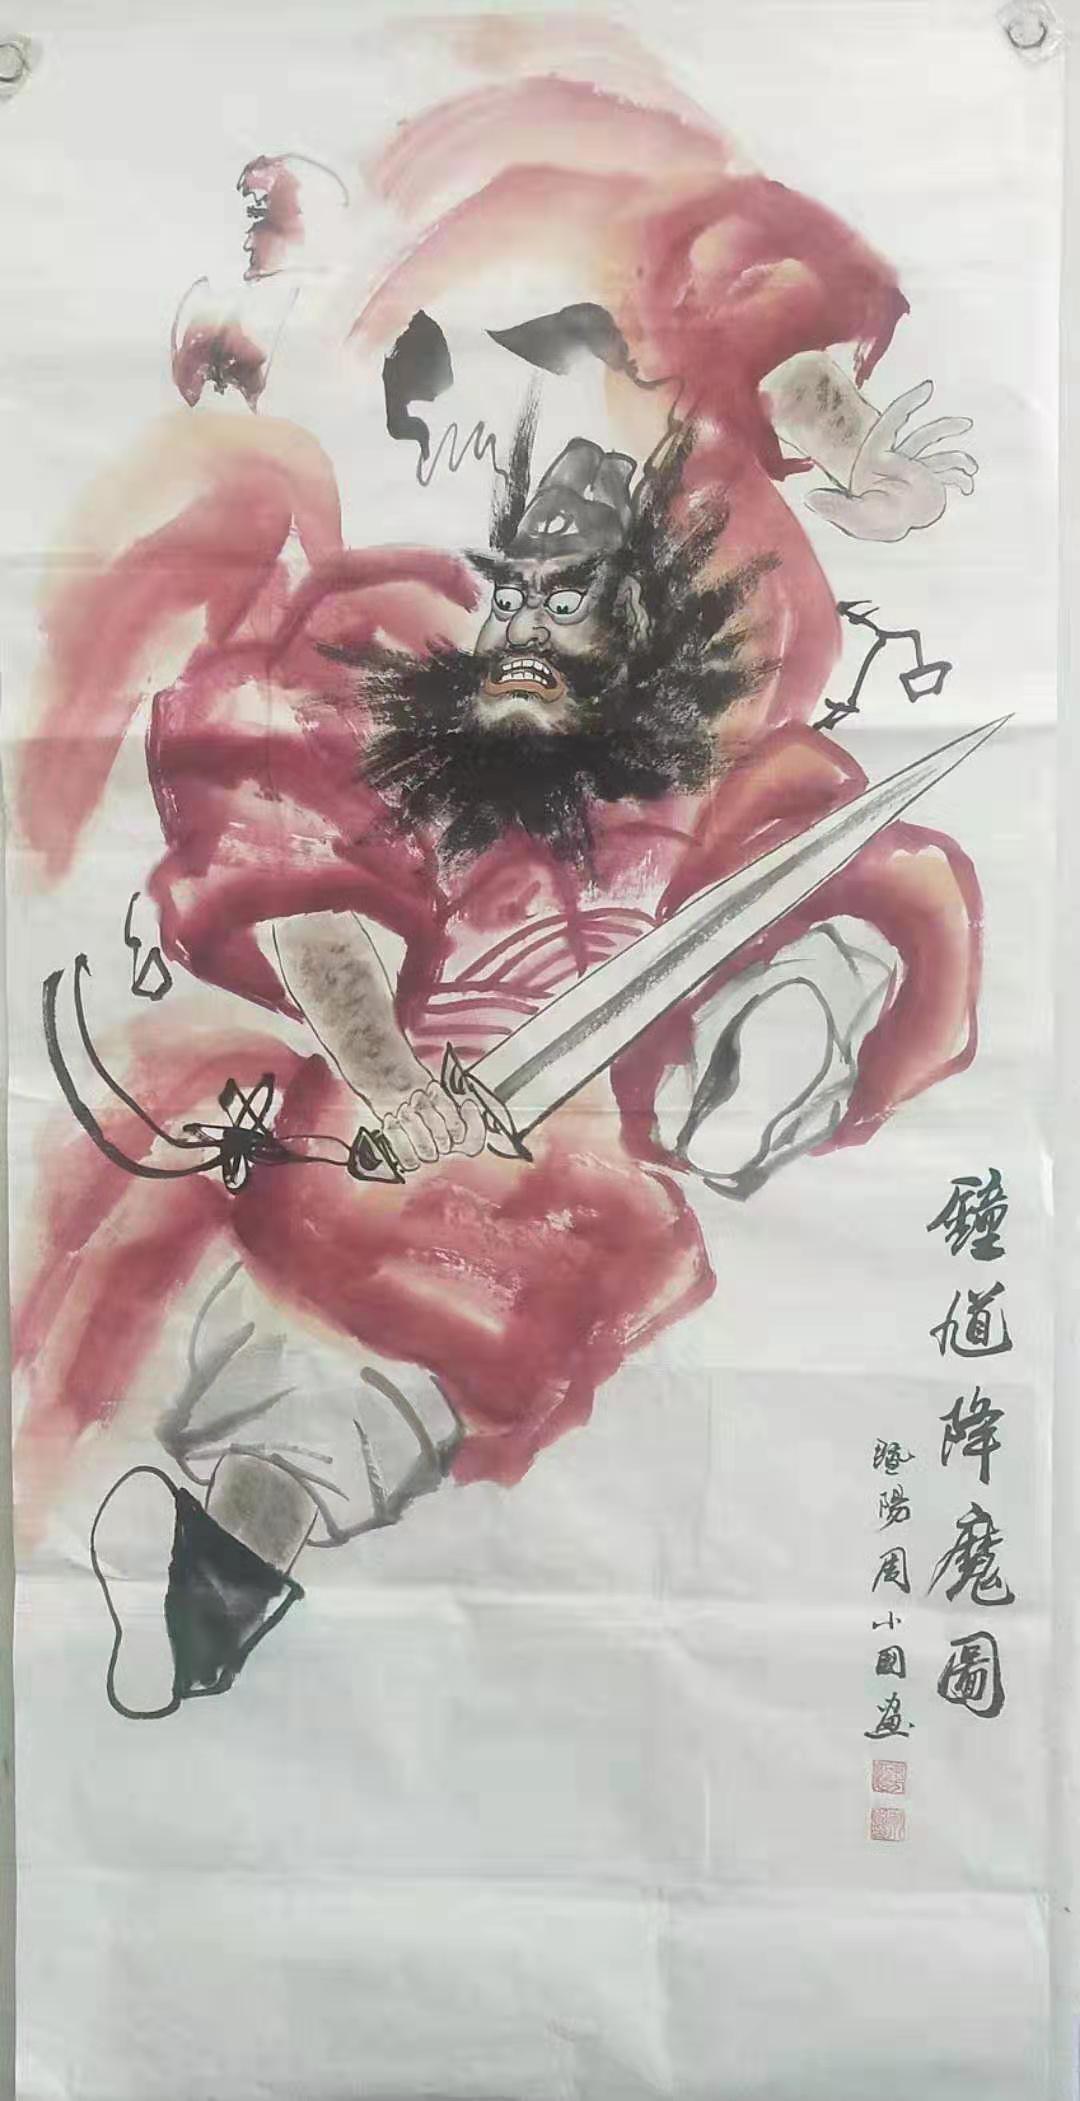 鐘馗降魔圖
暨陽周小國畫